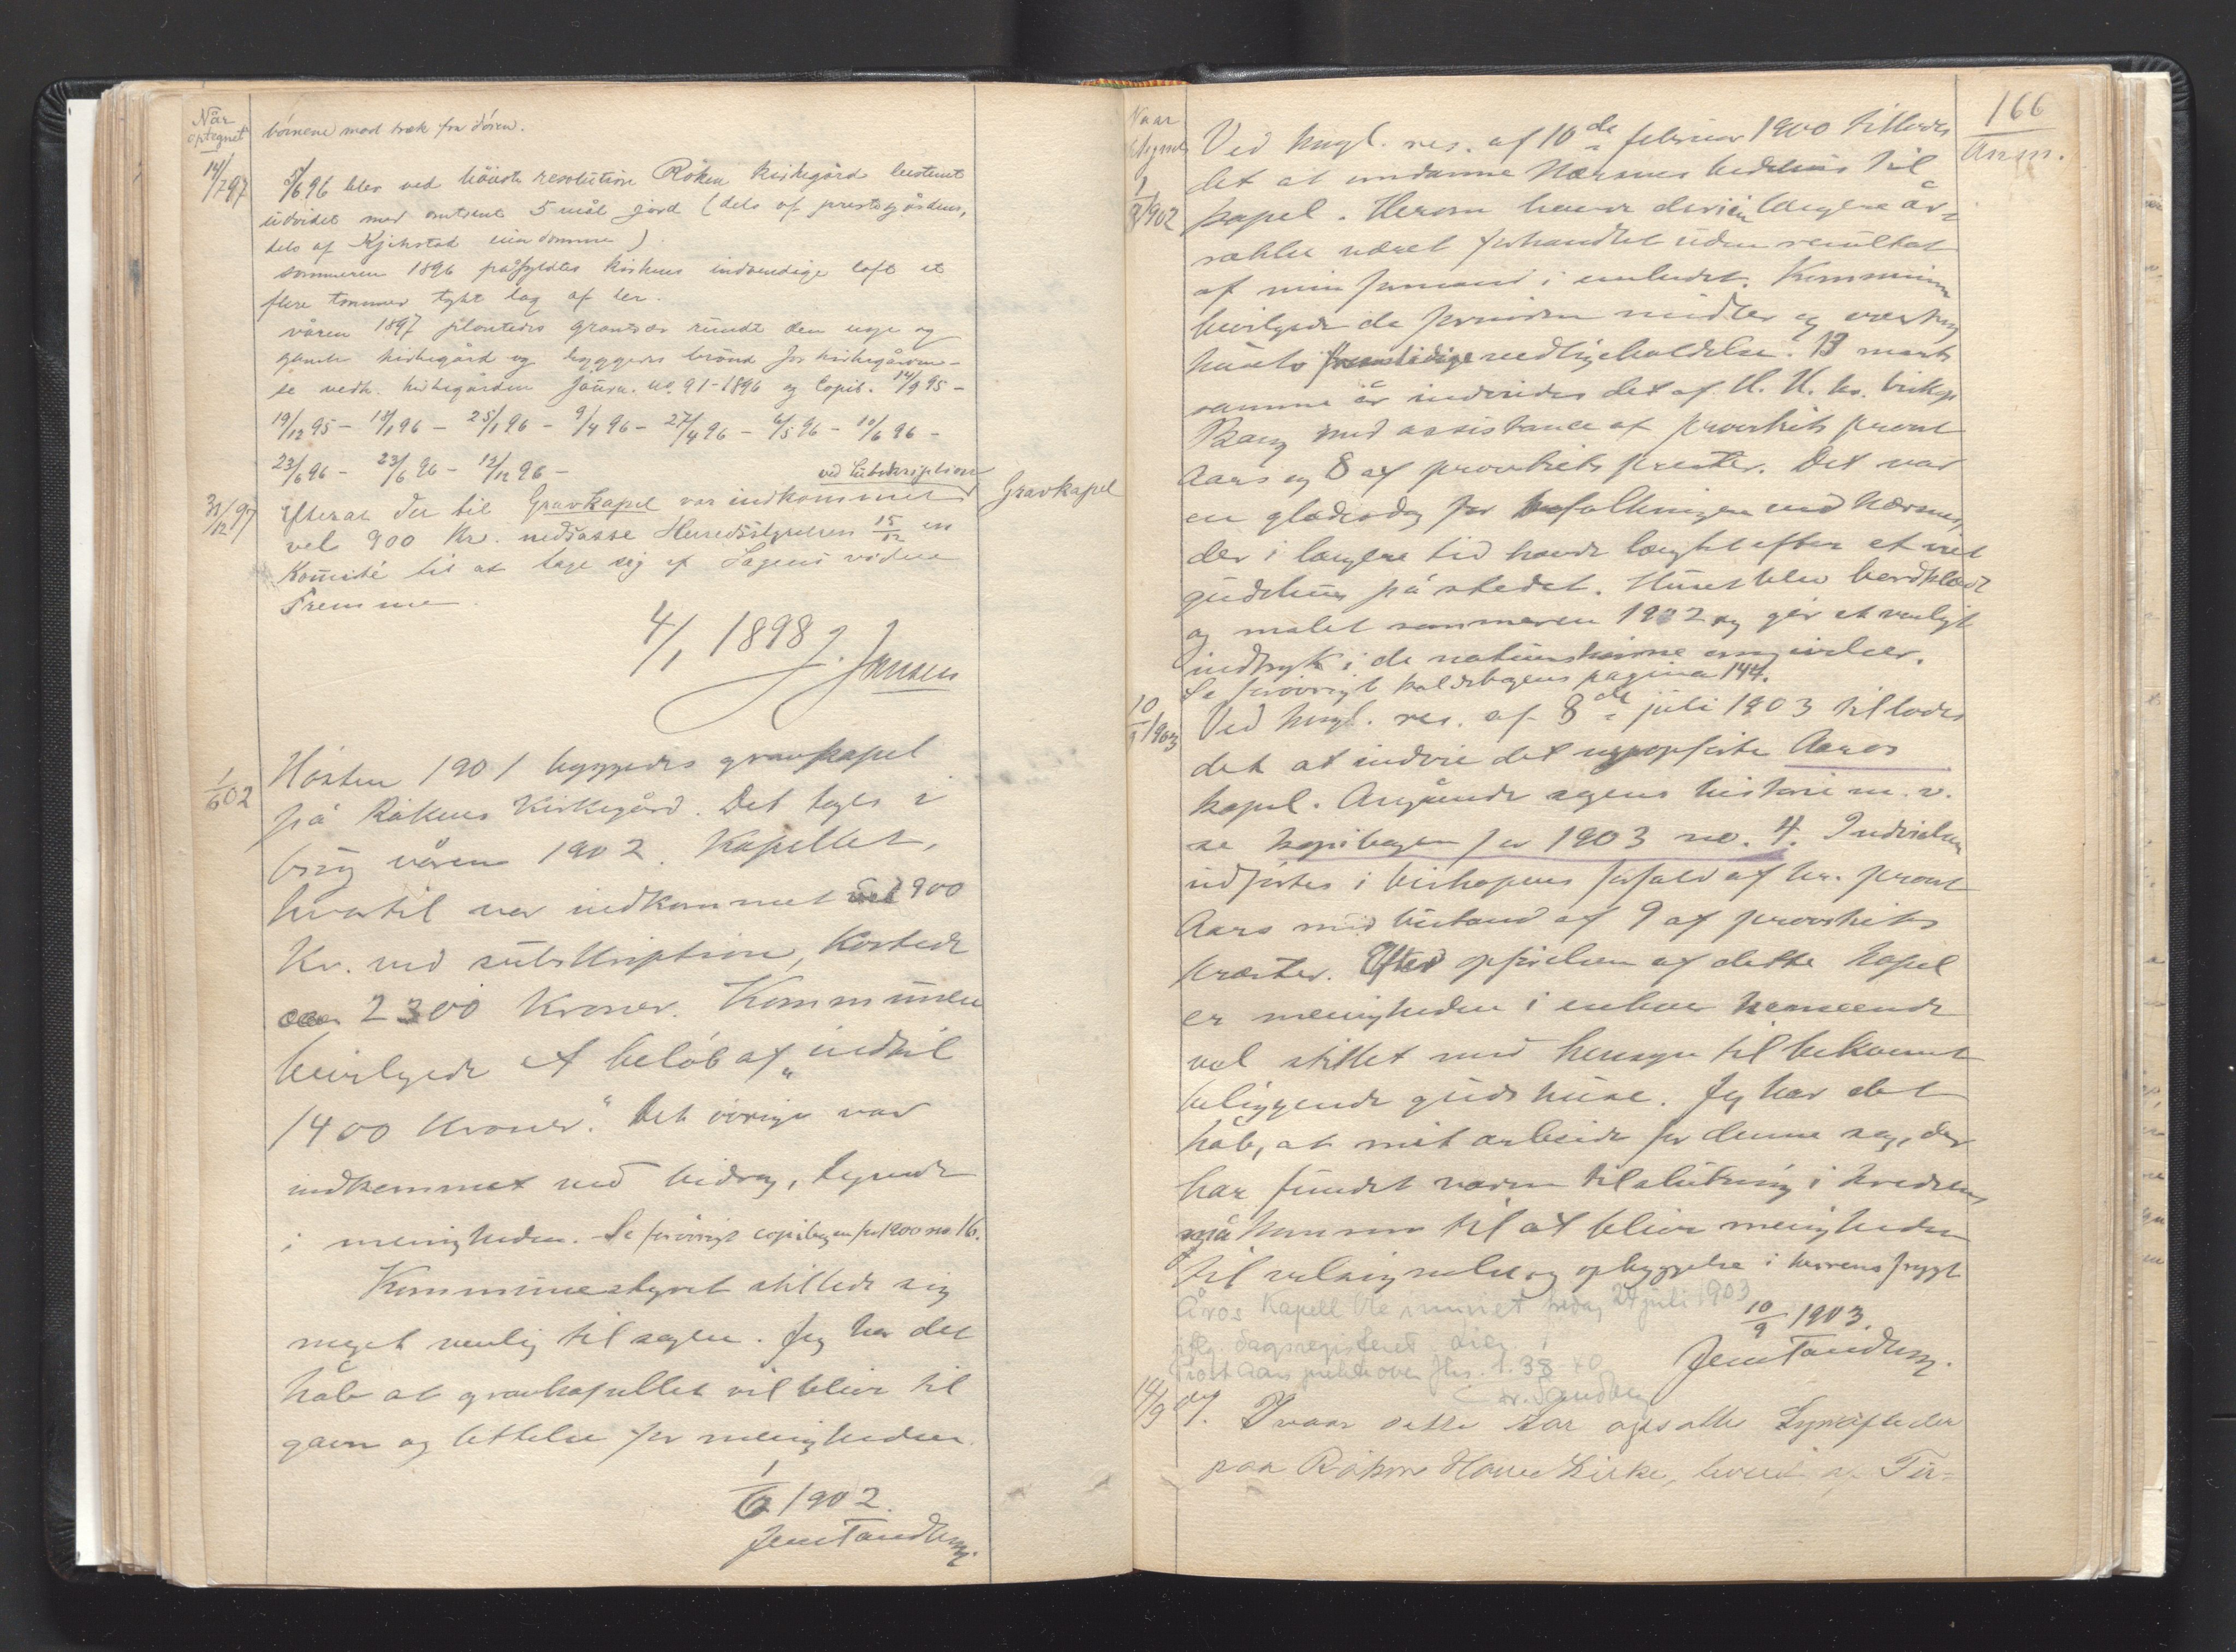 Når
optegnet
børnene mod træk fra døren.
14/7 97
5/6 96 blev ved höieste resolution Röken kirkegård bestemt
udvidet med omtrent 5 mål jord (dels af prestegårdens,
dels af Kjekstad eiendomme)
sommeren 1896 påfyldtes kirkens indvendige loft et
flere tommer tykt lag af ler.
våren 1897 plantedes grantrær rundt den nye og
gamle kirkegård og byggedes brönd for kirkegårdene -
se vedk. kirkegården Journ. no. 91-1896 og Copib. 14/9 95 -
19/12 95 - 18/1 96 - 25/1 96 - 9/4 96 - 27/4 96 - 6/5 96 - 10/6 96 -
23/6 96 - 23/6 96 - 12/12 96 -
ved Subskription
31/12 97
Efterat der til Gravkapel var indkommet
Gravkapel
vel 900 Kr. nedsatte Herredsstyrelsen 15/12 en
Komité til at tage sig af Sagens videre
Fremme.
4/1 1898 J. Jansen
1/6 02
Hösten 1901 byggedes gravkapel
på Rökens Kirkegård. Det toges i
brug våren 1902. Kapellet,
hvortil var indkommet vel 900
Kr. ved subskription, kostede
ca. 2300 Kroner. Kommunen
bevilgede et belöb af „indtil
1400 Kroner." Det övrige var
indkommet ved bidrag, ydende
i menigheden. Se forövrigt copibogen for 1900 no. 16.
Kommunestyret stillede sig
meget venlig til sagen. Jeg har det
håb at gravkapellet vil blive til
gavn og lettelse for menigheden.
1/6 1902.
Jens Tandberg.
166
Naar
Anm.
1/8 1902
Ved kngl. res. af 10de februar 1900 tillodes
det at omdanne Nærsnes bedehus til
kapel. Herom havde der i en længere år-
række været forhandlet uden resultat
af min formand i embedet. Kommunen
bevilgede de fornödne midler og overtog
husets fremtidige vedligeholdelse. 13 marts
samme år indviedes det af H. H. hr. biskop
Bang med assistance af provstiets provst
Aars og 8 af provstiets prester. Det var
en glædesdag for befolkningen ved Nærsnes,
der i længere tid havde længtet efter et viet
gudshus på stedet. Huset blev bordklædt
og malet sommeren 1902 og gör et venligt
indtryk i de naturskjönne omgivelser.
Se forövrigt kaldsbogens pagina 144.
10/9 1903
Ved kngl. res. af 8de juli 1903 tillodes
det at indvie det nyopförte Aaros
kapel. Angående sagens historie m. v.
se kopibogen for 1903 no. 4. Indvielsen
udförtes i biskopens forfald af hr. provst
Aars med bistand af 9 af provstiets
præster. Efter opförelsen af dette kapel
er menigheden i enhver henseende
vel stillet med hensyn til bekvemt
beliggende gudshuse. Jeg har det
håb, at mit arbeide for denne sag, der
har fundet varm tilslutning i kredsen,
må komme til at blive menigheden
til velsignelse og opbyggelse i herrens frygt
Åros Kapell ble innviet fredag 24 juli 1903
10/9 1903.
iflg. dagsregisteret.
Jens Tandberg.
Provst Aars prekte over Jhs. 1. 38
14/9 07.
I vaar dette Aar opsattes Lynafleder
paa Rökens Hovedkirke,